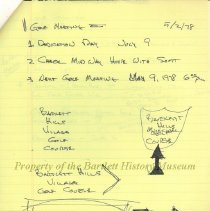 GOLF MEETING 5/2/78
1. DEDICATION DAY JULY 9
2. CHECK MIDWAY HOUSE WITH SCOTT
3. NEXT GOLF MEETING MAY 9, 1978 6
BARTLETT
HILLS
VILLAGE
GOLF
COURSE
BARTLETT
HILLS
MUNICIPAL
COURSE
Property of the Bartlett History Museum
BARTLETT HILLS
VILLAGE
GOLF COURSE